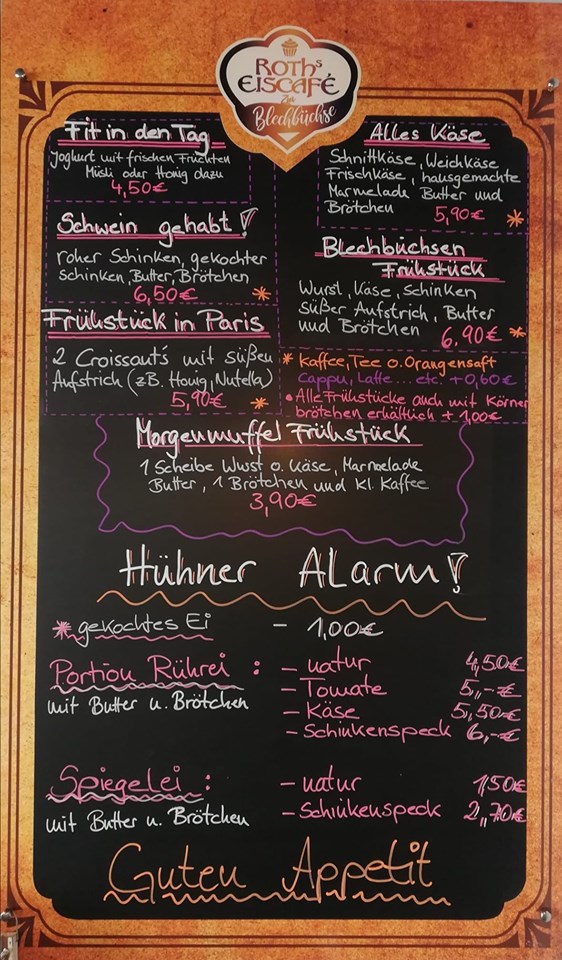 ROTHs
EISCAFÉ
Zur
Blechbüchse
Fit in den Tag
Joghurt mit frischen Früchten
Müsli oder Honig dazu
4,50€
Schwein gehabt!
roher Schinken, gekochter
Schinken, Butter, Brötchen
6,50€ *
Frühstück in Paris
2 Croissants mit süßen
Aufstrich (zB. Honig, Nutella)
5,90€ *
Alles Käse
Schnittkäse, Weichkäse
Frischkäse, hausgemachte
Marmelade Butter und
Brötchen 5,90€ *
Blechbüchsen
Frühstück
Wurst, Käse, Schinken
süßer Aufstrich, Butter
und Brötchen 6,90€ *
* Kaffee, Tee o. Orangensaft
Cappu, Latte... etc. +0,60€
• Alle Frühstücke auch mit Körner
brötchen erhältlich + 1,00€
Morgenmuffel Frühstück
1 Scheibe Wurst o. Käse, Marmelade
Butter, 1 Brötchen und kl. Kaffee
3,90€
Hühner ALarm!
* gekochtes Ei - 1,00€
Portion Rührei : - natur 4,50€
mit Butter u. Brötchen - Tomate 5,-€
- Käse 5,50€
- Schinkenspeck 6,-€
Spiegelei : - natur 1,50€
mit Butter u. Brötchen - Schinkenspeck 2,70€
Guten Appetit